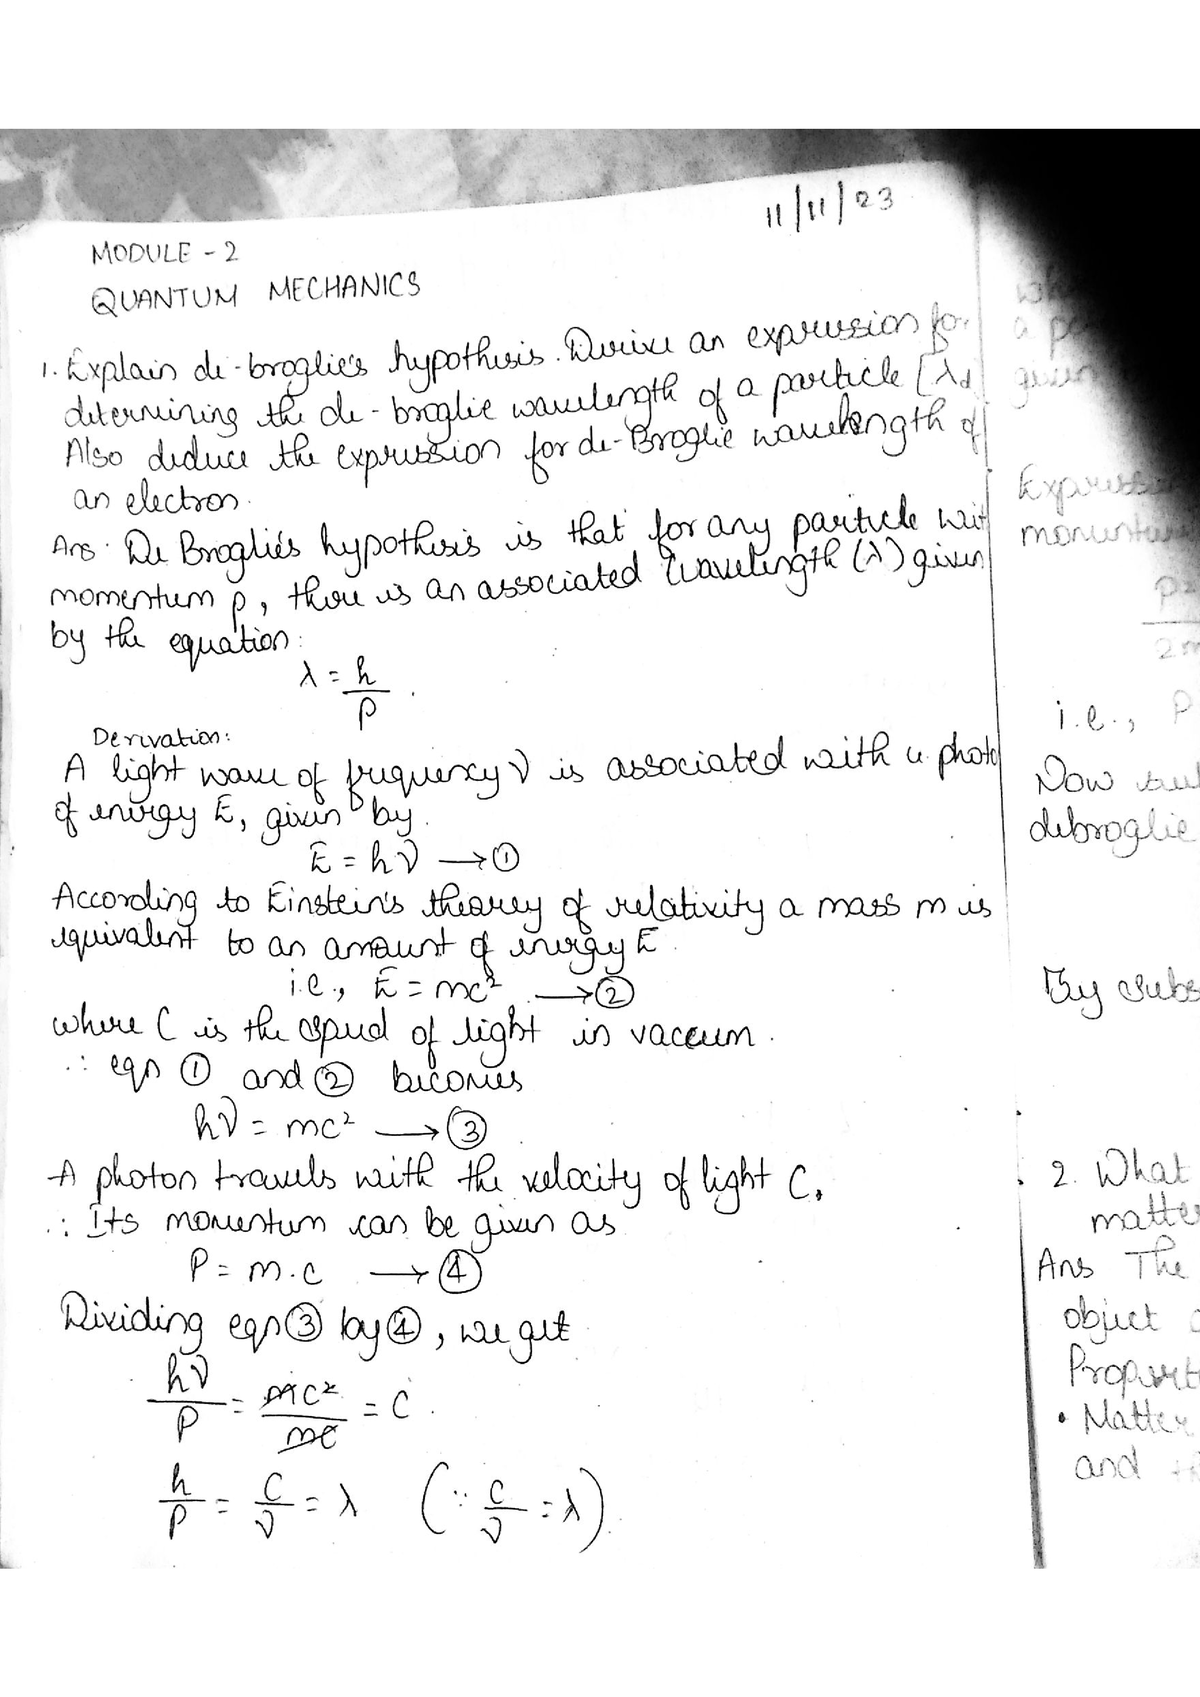 11/11/23
MODULE - 2
QUANTUM MECHANICS
1. Explain de-broglie's hypothesis. Derive an expression for
determining the de-broglie wavelength of a particle [λd
Also deduce the expression for de-Broglie wavelength of
an electron.
Ans. De Broglie's hypothesis is that for any particle wit
momentum p, there is an associated wavelength (λ) given
by the equation:
λ = h/p.
Derivation:
A light wave of frequency ν is associated with a photo
of energy E, given by.
E = hν → ①
According to Einstein's theorey of relativity a mass m is
equivalent to an amount of energy E.
i.e., E = mc² → ②
where C is the speed of light in vaccum.
∴ eqn ① and ② becomes
hν = mc² → ③
A photon travels with the velocity of light C.
∴ Its momentum can be given as
P = m.c → ④
Dividing eqn ③ by ④, we get
hν/P = mc²/mc = C.
h/P = C/ν = λ (∵ C/ν = λ).
a pa
given
Express
momentum
P²
2m
i.e., P
Now sub
debroglie
By subs
2. What
matter
Ans The
object
Propert
• Matter
and